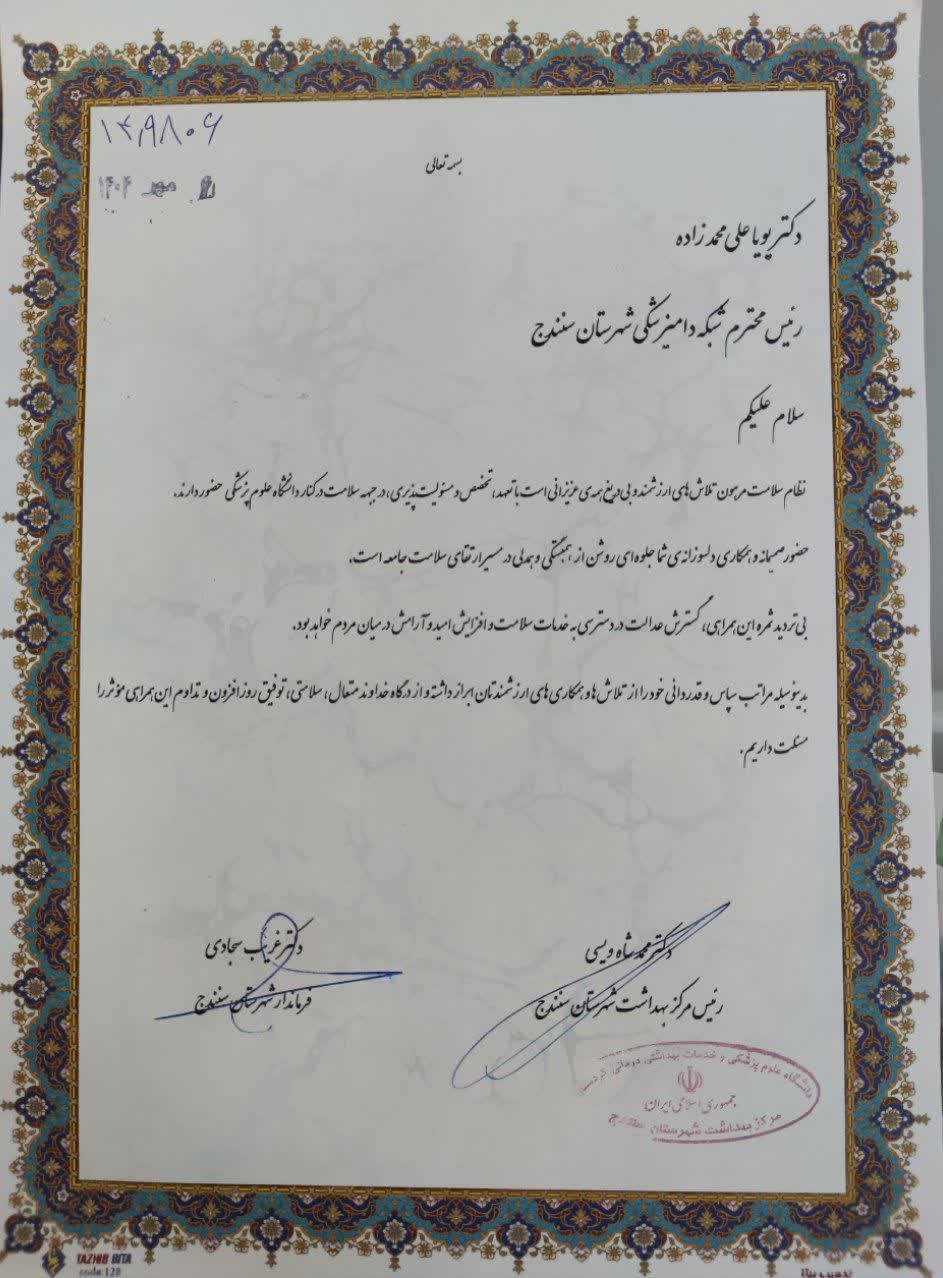 ۱۴۹۸۰۶
مهر ۱۴۰۴
بسمه تعالی
دکتر پویا علی محمد زاده
رئیس محترم شبکه دامپزشکی شهرستان سنندج
سلام علیکم
نظام سلامت مرهون تلاش های ارزشمند و بی دریغ همه ی عزیزانی است با تعهد، تخصص و مسئولیت پذیری، در جبهه سلامت در کنار دانشگاه علوم پزشکی حضور دارند.
حضور صمیمانه و همکاری دلسوزانه ی شما جلوه ای روشن از همبستگی و همدلی در مسیر ارتقای سلامت جامعه است.
بی تردید ثمره این همراهی، گسترش عدالت در دسترسی به خدمات سلامت و افزایش امید و آرامش در میان مردم خواهد بود.
بدینوسیله مراتب سپاس و قدردانی خود را از تلاش ها و همکاری های ارزشمندتان ابراز داشته و از درگاه خداوند متعال، سلامتی، توفیق روز افزون و تداوم این همراهی مؤثر را
مسئلت داریم.
دکتر محمد شاه ویسی
رئیس مرکز بهداشت شهرستان سنندج
دکتر غریب سجادی
فرماندار شهرستان سنندج
دانشگاه علوم پزشکی و خدمات بهداشتی درمانی
جمهوری اسلامی ایران
مرکز بهداشت شهرستان سنندج
TAZHIB BITA
code:128
تذهیب بیتا